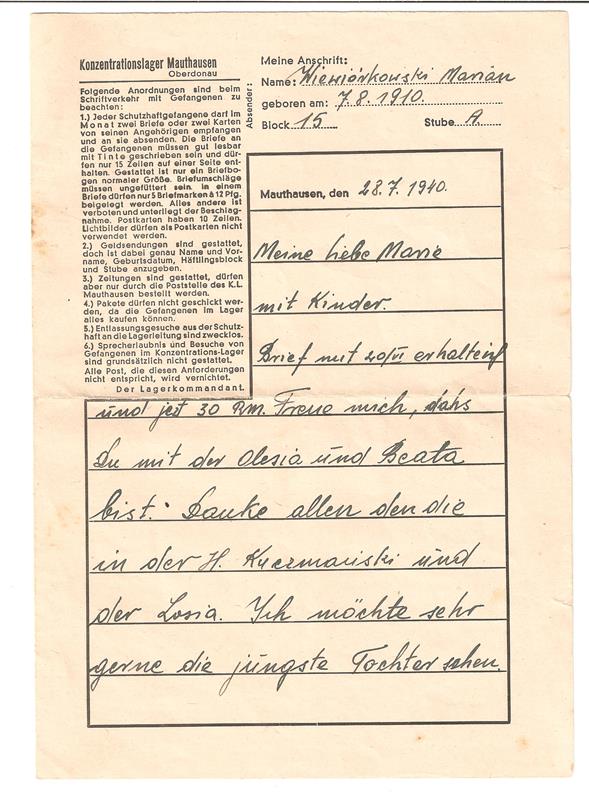 Konzentrationslager Mauthausen
Oberdonau
Folgende Anordnungen sind beim
Schriftverkehr mit Gefangenen zu
beachten:
1.) Jeder Schutzhaftgefangene darf im
Monat zwei Briefe oder zwei Karten
von seinen Angehörigen empfangen
und an sie absenden. Die Briefe an
die Gefangenen müssen gut lesbar
mit Tinte geschrieben sein und dür-
fen nur 15 Zeilen auf einer Seite ent-
halten. Gestattet ist nur ein Briefbo-
gen normaler Größe. Briefumschläge
müssen ungefüttert sein. In einem
Briefe dürfen nur 5 Briefmarken à 12 Pfg.
beigelegt werden. Alles andere ist
verboten und unterliegt der Beschlag-
nahme. Postkarten haben 10 Zeilen.
Lichtbilder dürfen als Postkarten nicht
verwendet werden.
2.) Geldsendungen sind gestattet,
doch ist dabei genau Name und Vor-
name, Geburtsdatum, Häftlingsblock
und Stube anzugeben.
3.) Zeitungen sind gestattet, dürfen
aber nur durch die Poststelle des K.L.
Mauthausen bestellt werden.
4.) Pakete dürfen nicht geschickt wer-
den, da die Gefangenen im Lager
alles kaufen können.
5.) Entlassungsgesuche aus der Schutz-
haft an die Lagerleitung sind zwecklos.
6.) Sprecherlaubnis und Besuche von
Gefangenen im Konzentrations-Lager
sind grundsätzlich nicht gestattet.
Alle Post, die diesen Anforderungen
nicht entspricht, wird vernichtet.
Der Lagerkommandant.
Absender:
Meine Anschrift:
Name: Wiewiórkowski Marian
geboren am: 7.8.1910.
Block 15 Stube A.
Mauthausen, den 28.7.1940.
Meine liebe Marie
mit Kinder.
Brief mit 20/VI erhalten
und 30 Rm. Freue mich, dahs
Du mit der Olesia und Beata
bist. Danke allen den die
in der H. und
der Losia. Ich möchte sehr
gerne die jüngste Tochter sehen.